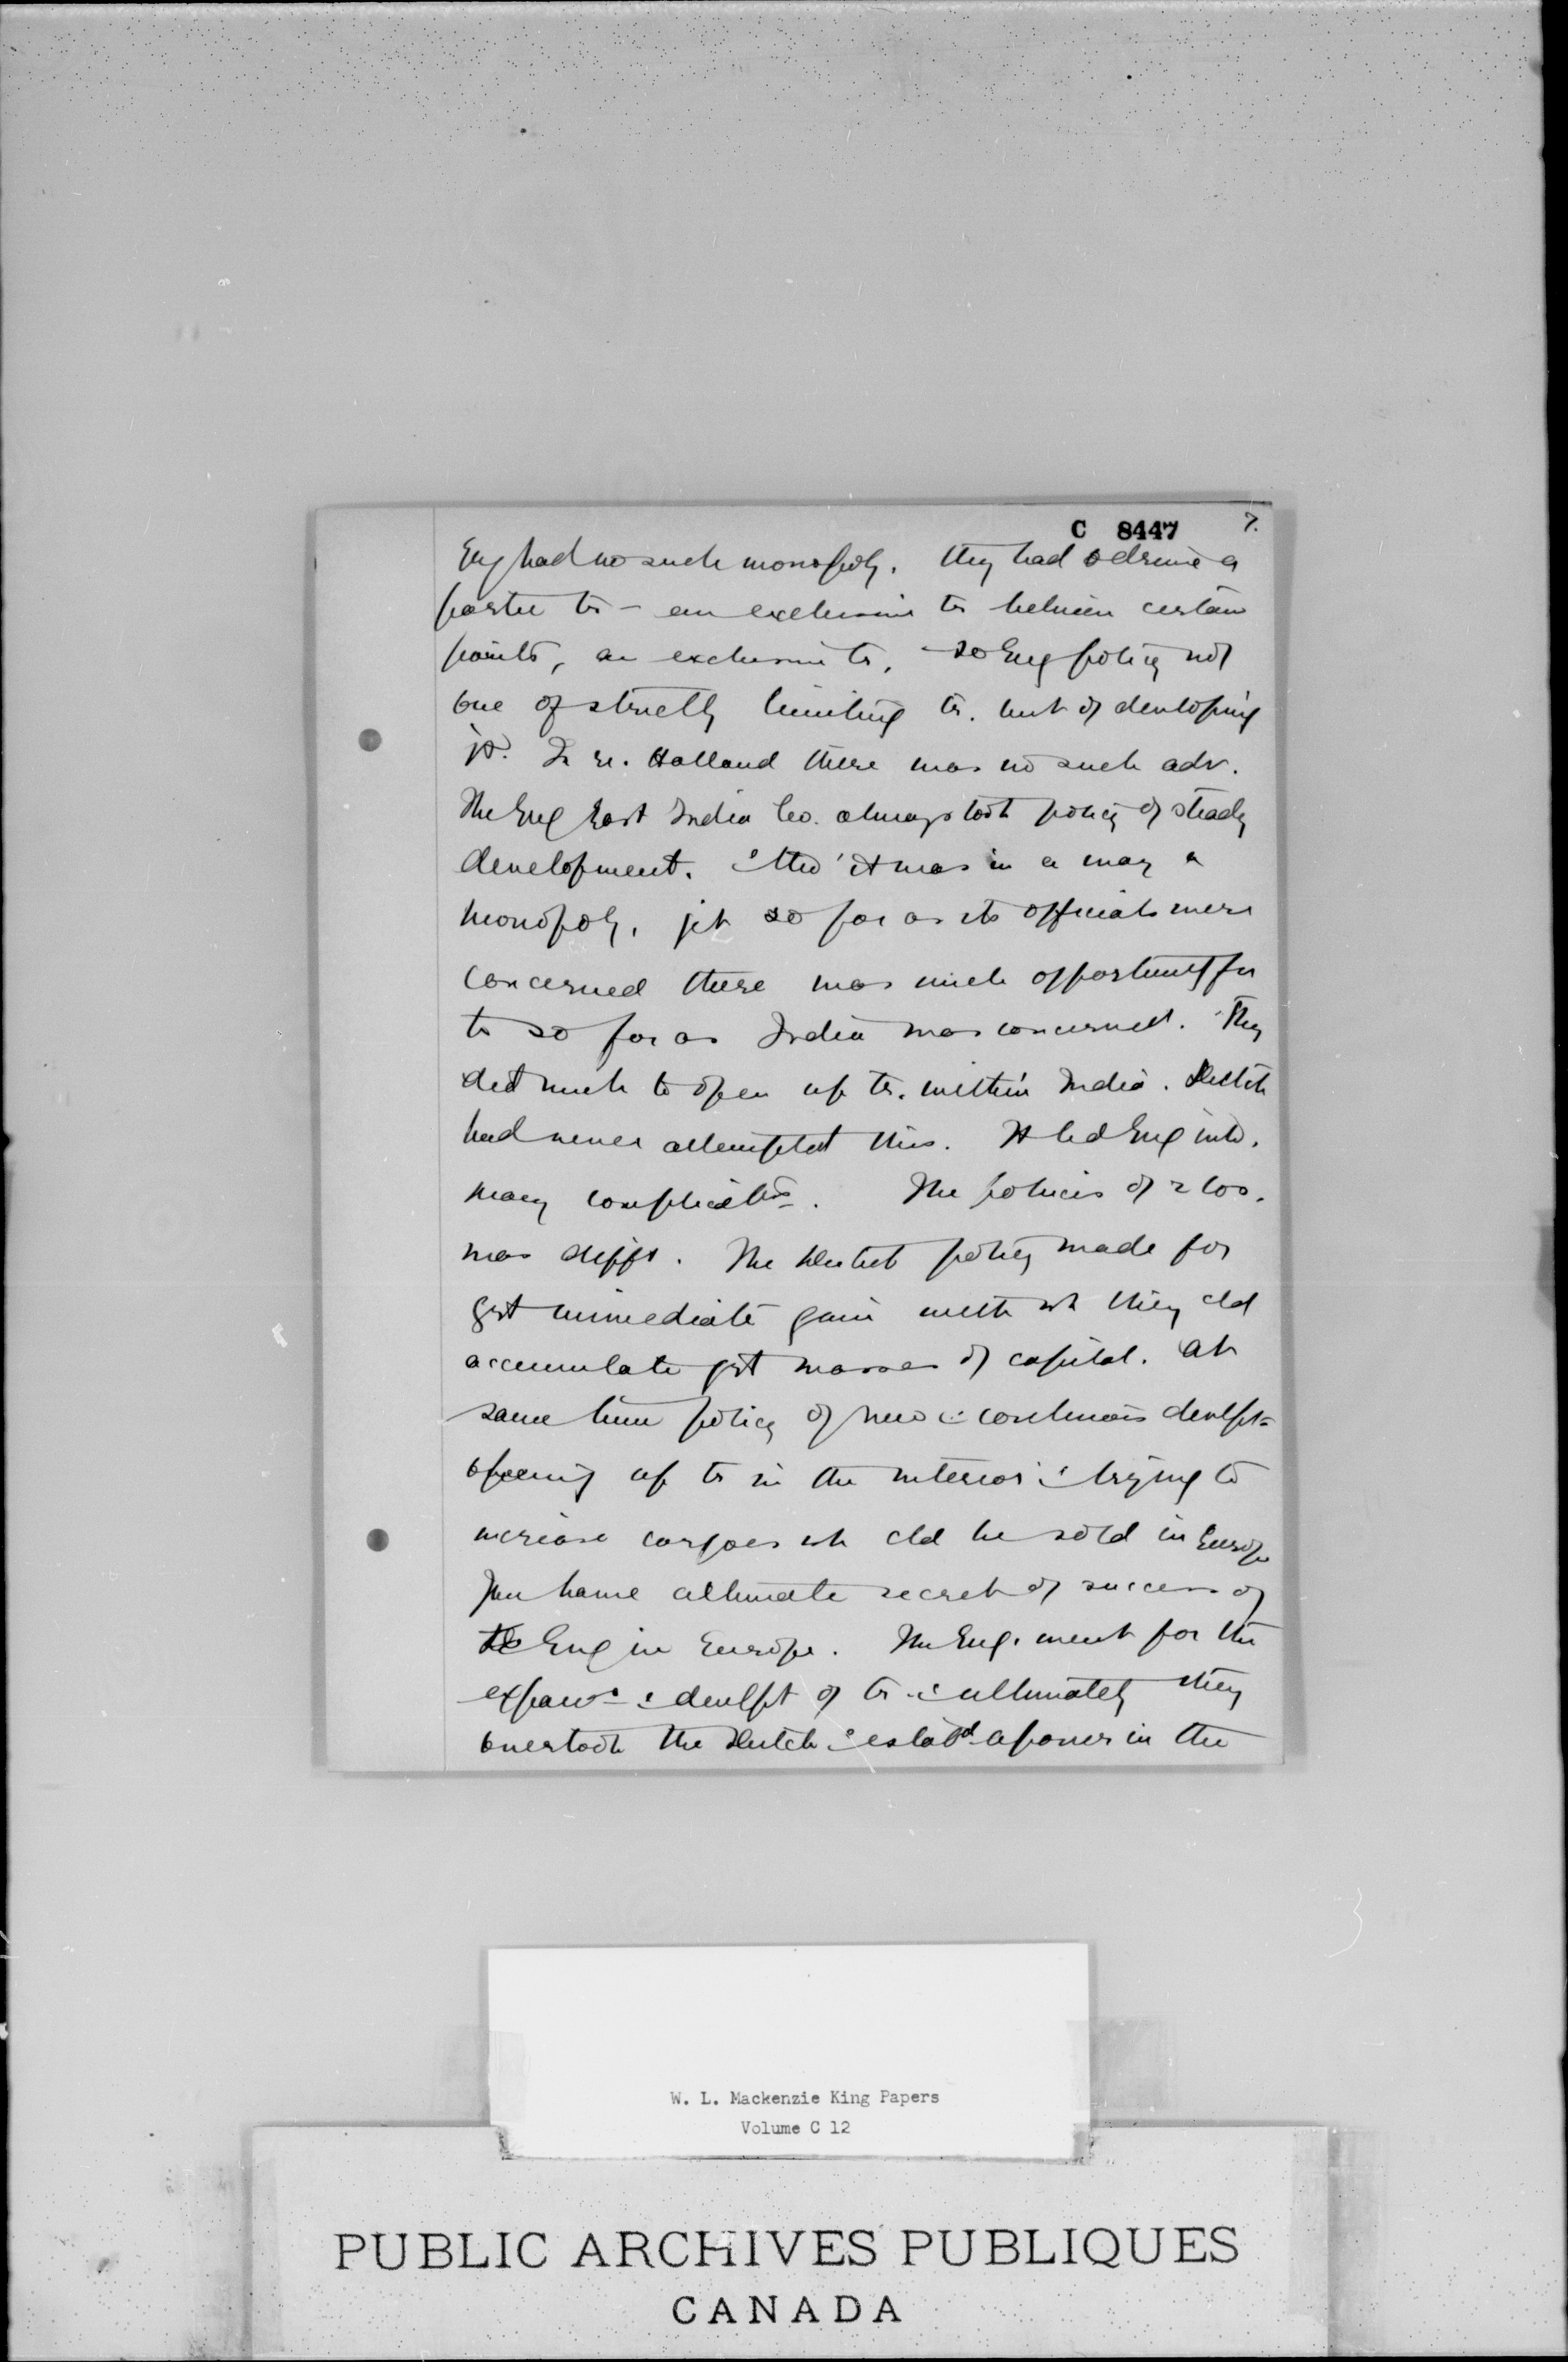 C 8447 7.
Eng had no such monopoly. they had to drive a
tr - an exclusive tr between certain
points, an exclusive tr. so Eng policy not
one of strictly limiting tr. but of developing
it. In Holland there was no such adv.
The Eng East India Co. always took policy of steady
development. & tho' it was in a way a
monopoly, yet so far as its officials were
concerned there was much opportunity for
tr so far as India was concerned. They
did much to open up tr. within India. Dutch
had never attempted this. It led Eng into
many complicatns. The policies of 2 cos.
was difft. The Dutch policy made for
grt immediate gain with wh they cld
accumulate grt masses of capital. At
same time policy of new & continuous develpt
opening up tr in the interior & trying to
increase cargoes wh cld be sold in Europe
ultimate secret of success of
Eng in Europe. The Eng. went for the
expansn & develpt of tr. & ultimately they
overtook the Dutch & estabd a power in the
W. L. Mackenzie King Papers
Volume C 12
PUBLIC ARCHIVES PUBLIQUES
CANADA